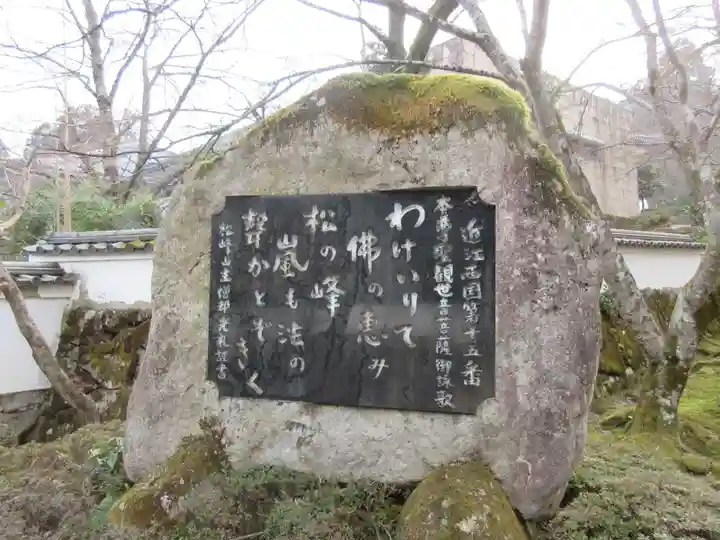 近江西国第十五番
本尊聖觀世音菩薩御詠歌
わけいりて
佛の恵み
松の峰
嵐も法の
聲かとぞきく
松峰山主僧都光礼謹書